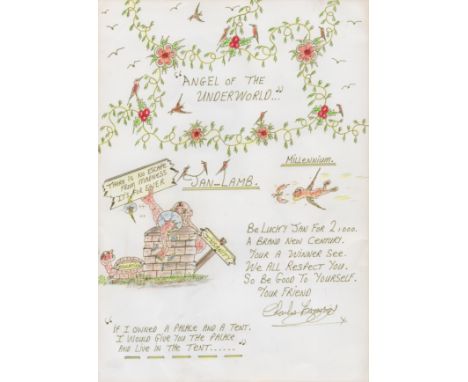 "ANGEL OF THE
UNDERWORLD..."
MILLENNIUM.
THERE IS NO ESCAPE
FROM MADNESS
IT'S FOR EVER
JAN-LAMB.
BE LUCKY JAN FOR 2,000.
A BRAND NEW CENTURY.
YOUR A WINNER SEE.
WE ALL RESPECT YOU.
SO BE GOOD TO YOURSELF.
YOUR FRIEND
"IF I OWNED A PALACE AND A TENT.
I WOULD GIVE YOU THE PALACE
AND LIVE IN THE TENT......"